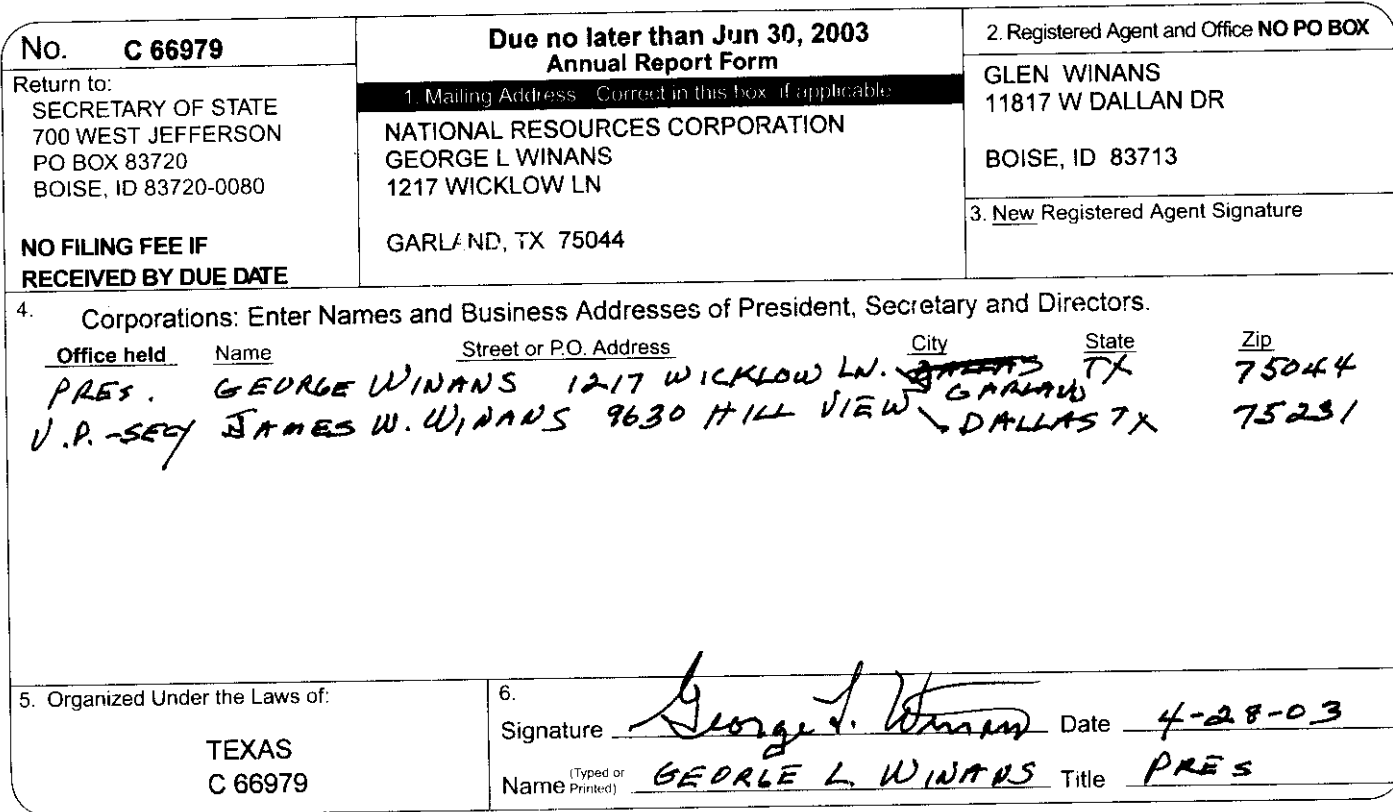 No. C 66979
Return to:
SECRETARY OF STATE
700 WEST JEFFERSON
PO BOX 83720
BOISE, ID 83720-0080
NO FILING FEE IF
RECEIVED BY DUE DATE
Due no later than Jun 30, 2003
Annual Report Form
1. Mailing Address Correct in this box if applicable
NATIONAL RESOURCES CORPORATION
GEORGE L WINANS
1217 WICKLOW LN
GARLAND, TX 75044
2. Registered Agent and Office NO PO BOX
GLEN WINANS
11817 W DALLAN DR
BOISE, ID 83713
3. New Registered Agent Signature
4. Corporations: Enter Names and Business Addresses of President, Secretary and Directors.
Office held Name Street or P.O. Address City State Zip
PRES. GEORGE WINANS 1217 WICKLOW LN. GARLAND TX 75044
V.P.-SECY JAMES W. WINANS 9630 HILL VIEW DALLAS TX 75231
5. Organized Under the Laws of:
TEXAS
C 66979
6.
Signature George L. Winans Date 4-28-03
Name (Typed or Printed) GEORGE L. WINANS Title PRES